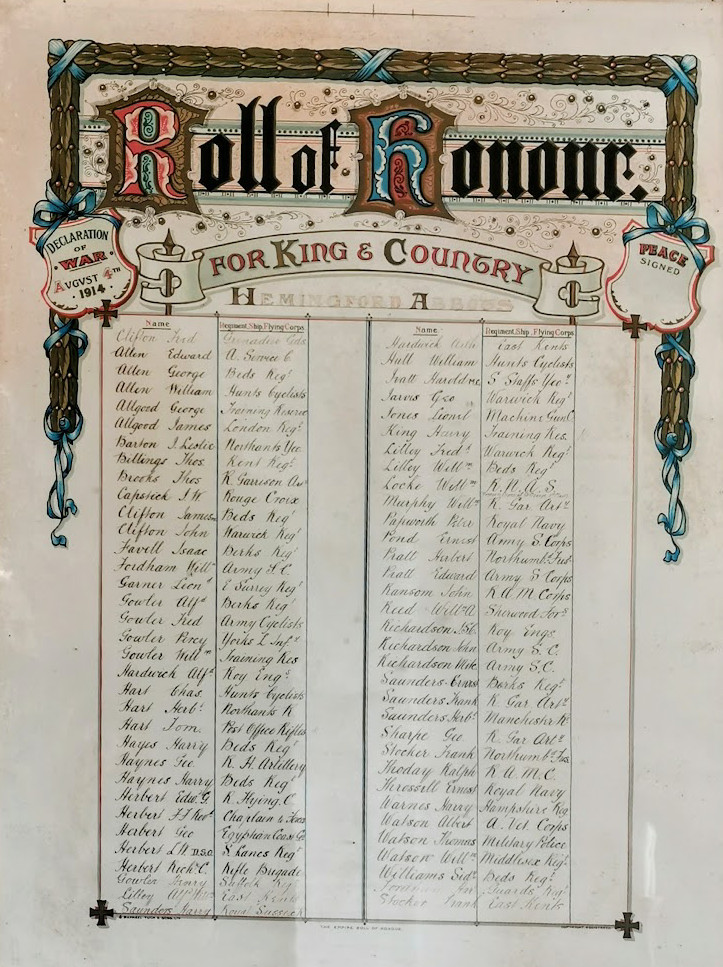 Roll of Honour.
DECLARATION
OF
WAR
AVGVST 4TH
1914
FOR KING & COUNTRY
PEACE
SIGNED
HEMINGFORD ABBOTS
Name Regiment, Ship, Flying Corps
Clifton Fred Grenadier Gds
Allen Edward A. Service C
Allen George Beds Regt
Allen William Hunts Cyclists
Allgood George Training Reserve
Allgood James London Regt
Barton J. Leslie Northants Yeo
Billings Thos. Kent Regt
Brooks Thos R. Garrison
Capstick J.W. Rouge Croix
Clifton James Beds Regt
Clifton John Warwick Regt
Favell Isaac Berks Regt
Fordham Willm Army S.C.
Garner Leond E Surrey Regt
Gowler Alfd Berks Regt
Gowler Fred Army Cyclists
Gowler Percy Yorks L. Inft
Gowler Willm Training Res
Hardwick Alfd Roy Engs
Hart Chas. Hunts Cyclists
Hart Herbt Northants R
Hart Tom. Post Office Rifles
Hayes Harry Beds Regt
Haynes Geo R. H. Artillery
Haynes Harry Beds Regt
Herbert Edw. G. R. Flying. C.
Herbert Chaplain
Herbert Geo Egyptian Coast Gd
Herbert D.S.O. S. Lancs Regt
Herbert Rich. C. Rifle Brigade
Gowler Harry Suffolk Regt
Lilley East Kents
Saunders Harry Royal Sussex
Name. Regiment, Ship, Flying Corps
Hardwick East Kents
Hull William Hunts Cyclists
Ivatt Harold S Staffs Yeo
Jarvis Geo Warwick Regt
Jones Lionel Machine Gun C
King Harry Training Res.
Lilley Fredk Warwick Regt
Lilley Willm Beds Regt
Locke Willm R.N.A.S.
Murphy Willm R. Gar Arty
Papworth Peter Royal Navy
Pond Ernest Army S. Corps
Pratt Herbert Northumb. Fus
Pratt Edward Army S Corps
Ransom John R.A.M. Corps
Reed Will. A. Sherwood Fors
Richardson Roy Engs
Richardson John Army S. C.
Richardson Army S.C.
Saunders Ernest Berks Regt
Saunders Frank R. Gar Arty
Saunders Herbt Manchester R
Sharpe Geo R. Gar Arty
Stocker Frank Northumb. Fus.
Thoday Ralph R.A.M.C.
Throssell Ernest Royal Navy
Warnes Harry Hampshire Reg
Watson Albert A. Vet. Corps
Watson Thomas Military Police
Watson Willm Middlesex Regt
Williams Sid. Beds Regt
Guards Regt
Stocker Frank East Kents
THE EMPIRE ROLL OF HONOUR.